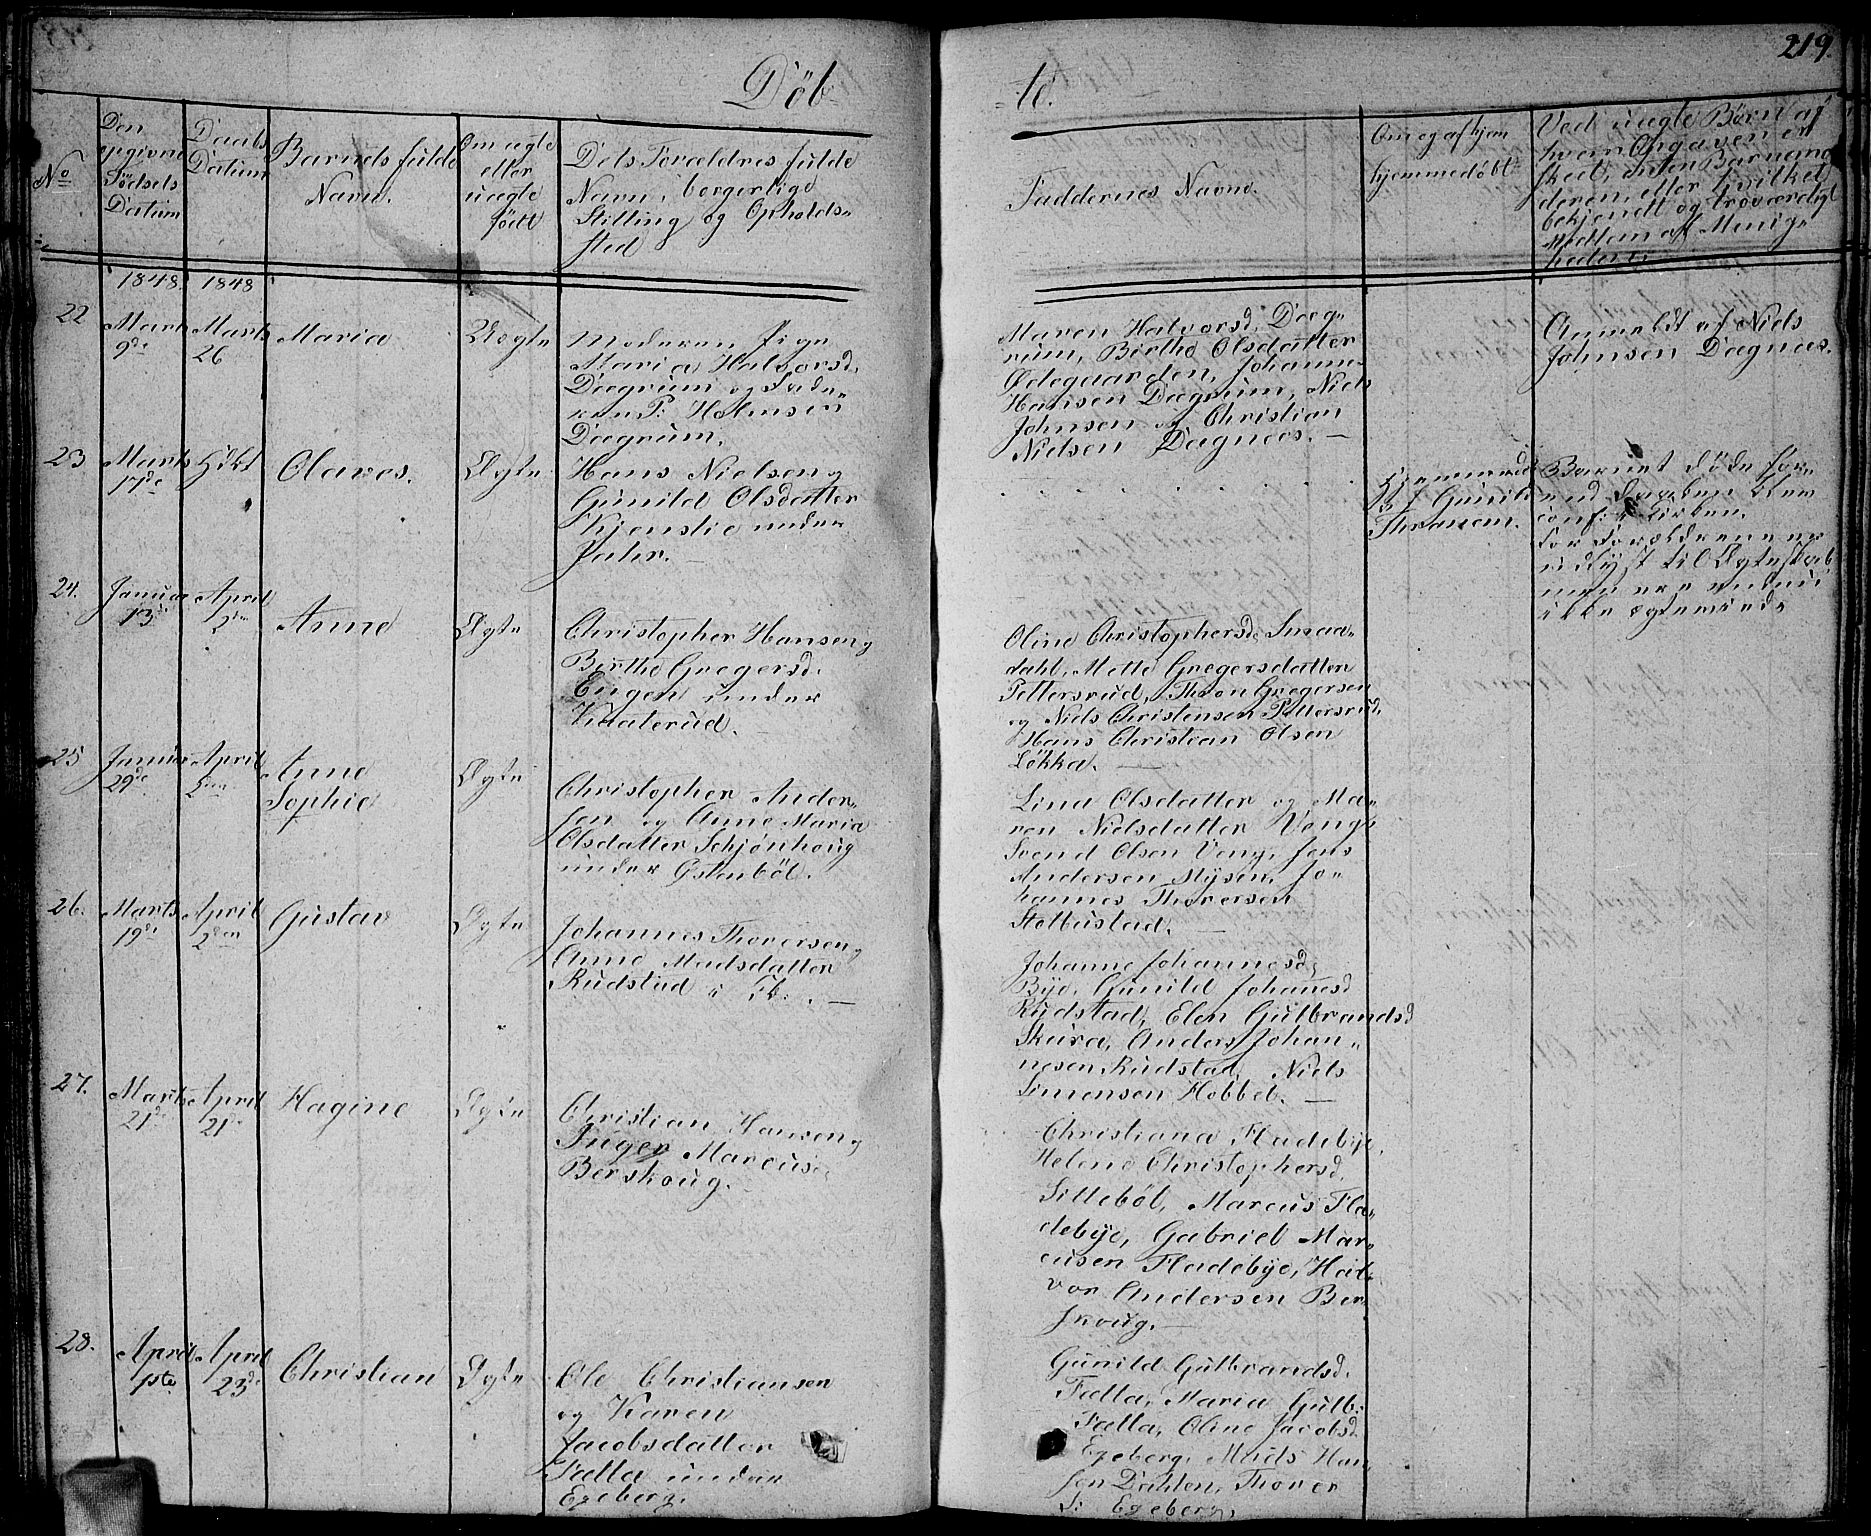 219.
Döb-
-te.
No
Den
opgivne
Födsels
Datum
Daabs
Datum
Barnets fulde
Navn.
Om ægte
eller
uægte
födt
Dets Forældres fulde
Navn, borgerlige
Stilling og Opholds-
sted
Faddernes Navne.
Om og af hvem
hjemmedöbt
Ved uægte Börn af
hvem Opgaven er
skeet, enten Barnemo
deren, eller hvilket
bekjendt og troværdigt
Medlem af Menig-
heden.
1848. 1848
22
Marts
9de
Marts
26
Maria
Uægte
Moderen Pige
Maria Halvorsd.
Dægrum og Fade-
ren P: Holmsen
Dægrum.
Maren Halvorsd. Dæg-
rum, Birthe Olsdatter
Ödegaarden, Johanne
Hansen Dægrum, Niels
Johnsen og Christian
Nielsen Dægnæs. —
Anmeldt af Niels
Johnsen Dægnæs.
23
Marts
17de
Hdbt
Olaves.
Ægte
Hans Nielsen og
Gunild Olsdatter
Kjenslie under
Jahr. —
Hjemmedöbt
af Gunild
Thranem.
Barnet döde for-
end Daaben blev
conf: i Kirken.
For Forældrene er
udlyst til Ægteskab
men ere endnu
ikke ægteviede
24.
Januar
13de
April
2den
Anne
Ægte
Christopher Hansen og
Birthe Gregersd.
Engen under
Knaterud. —
Oline Christophersd. Smaa-
dahl, Mette Gregersdatter
Pettersrud, Thron Gregersen
og Niels Christensen Pettersrud,
Hans Christian Olsen
Lökka. —
25
Januar
29de
April
2den
Anne
Sophie
Ægte
Christopher Ander-
sen og Anne Maria
Olsdatter Schjönhoug
under Østenböl.
Lina Olsdatter og Ma-
ren Nielsdatter Veng,
Svend Olsen Veng, Jens
Andersen Mysen, Jo-
hannes Thoresen
Stolbustad. —
26.
Marts
19de
April
2den
Gustav
Ægte
Johannes Thoresen og
Anne Madsdatter
Rudstad i Tb. —
Johanne Johannesd.
Bye, Gunild Johanesd
Rudstad, Elen Gulbrandsd
Skura, Anders Johan-
nesen Rudstad, Niels
Simensen Hobbel. —
27.
Marts
21de
April
21de
Hagine
Ægte
Christian Hansen og
Inger Marcusd.
Berskoug. —
Christiana Fladebye,
Helene Christophersd.
Sitteböl, Marcus Fla-
debye, Gabriel Mar-
cusen Fladebye, Hal-
vor Andersen Ber-
skoug. —
28.
April
1ste
April
23de
Christian
Ægte
Ole Christiansen
og Karen
Jacobsdatter
Fælla under
Egeberg.
Gunild Gulbrandsd.
Fælla, Maria Gulb:
Fælla, Oline Jacobsd
Egeberg, Mads Han
sen Drihlen, Thorer
S: Egeberg.